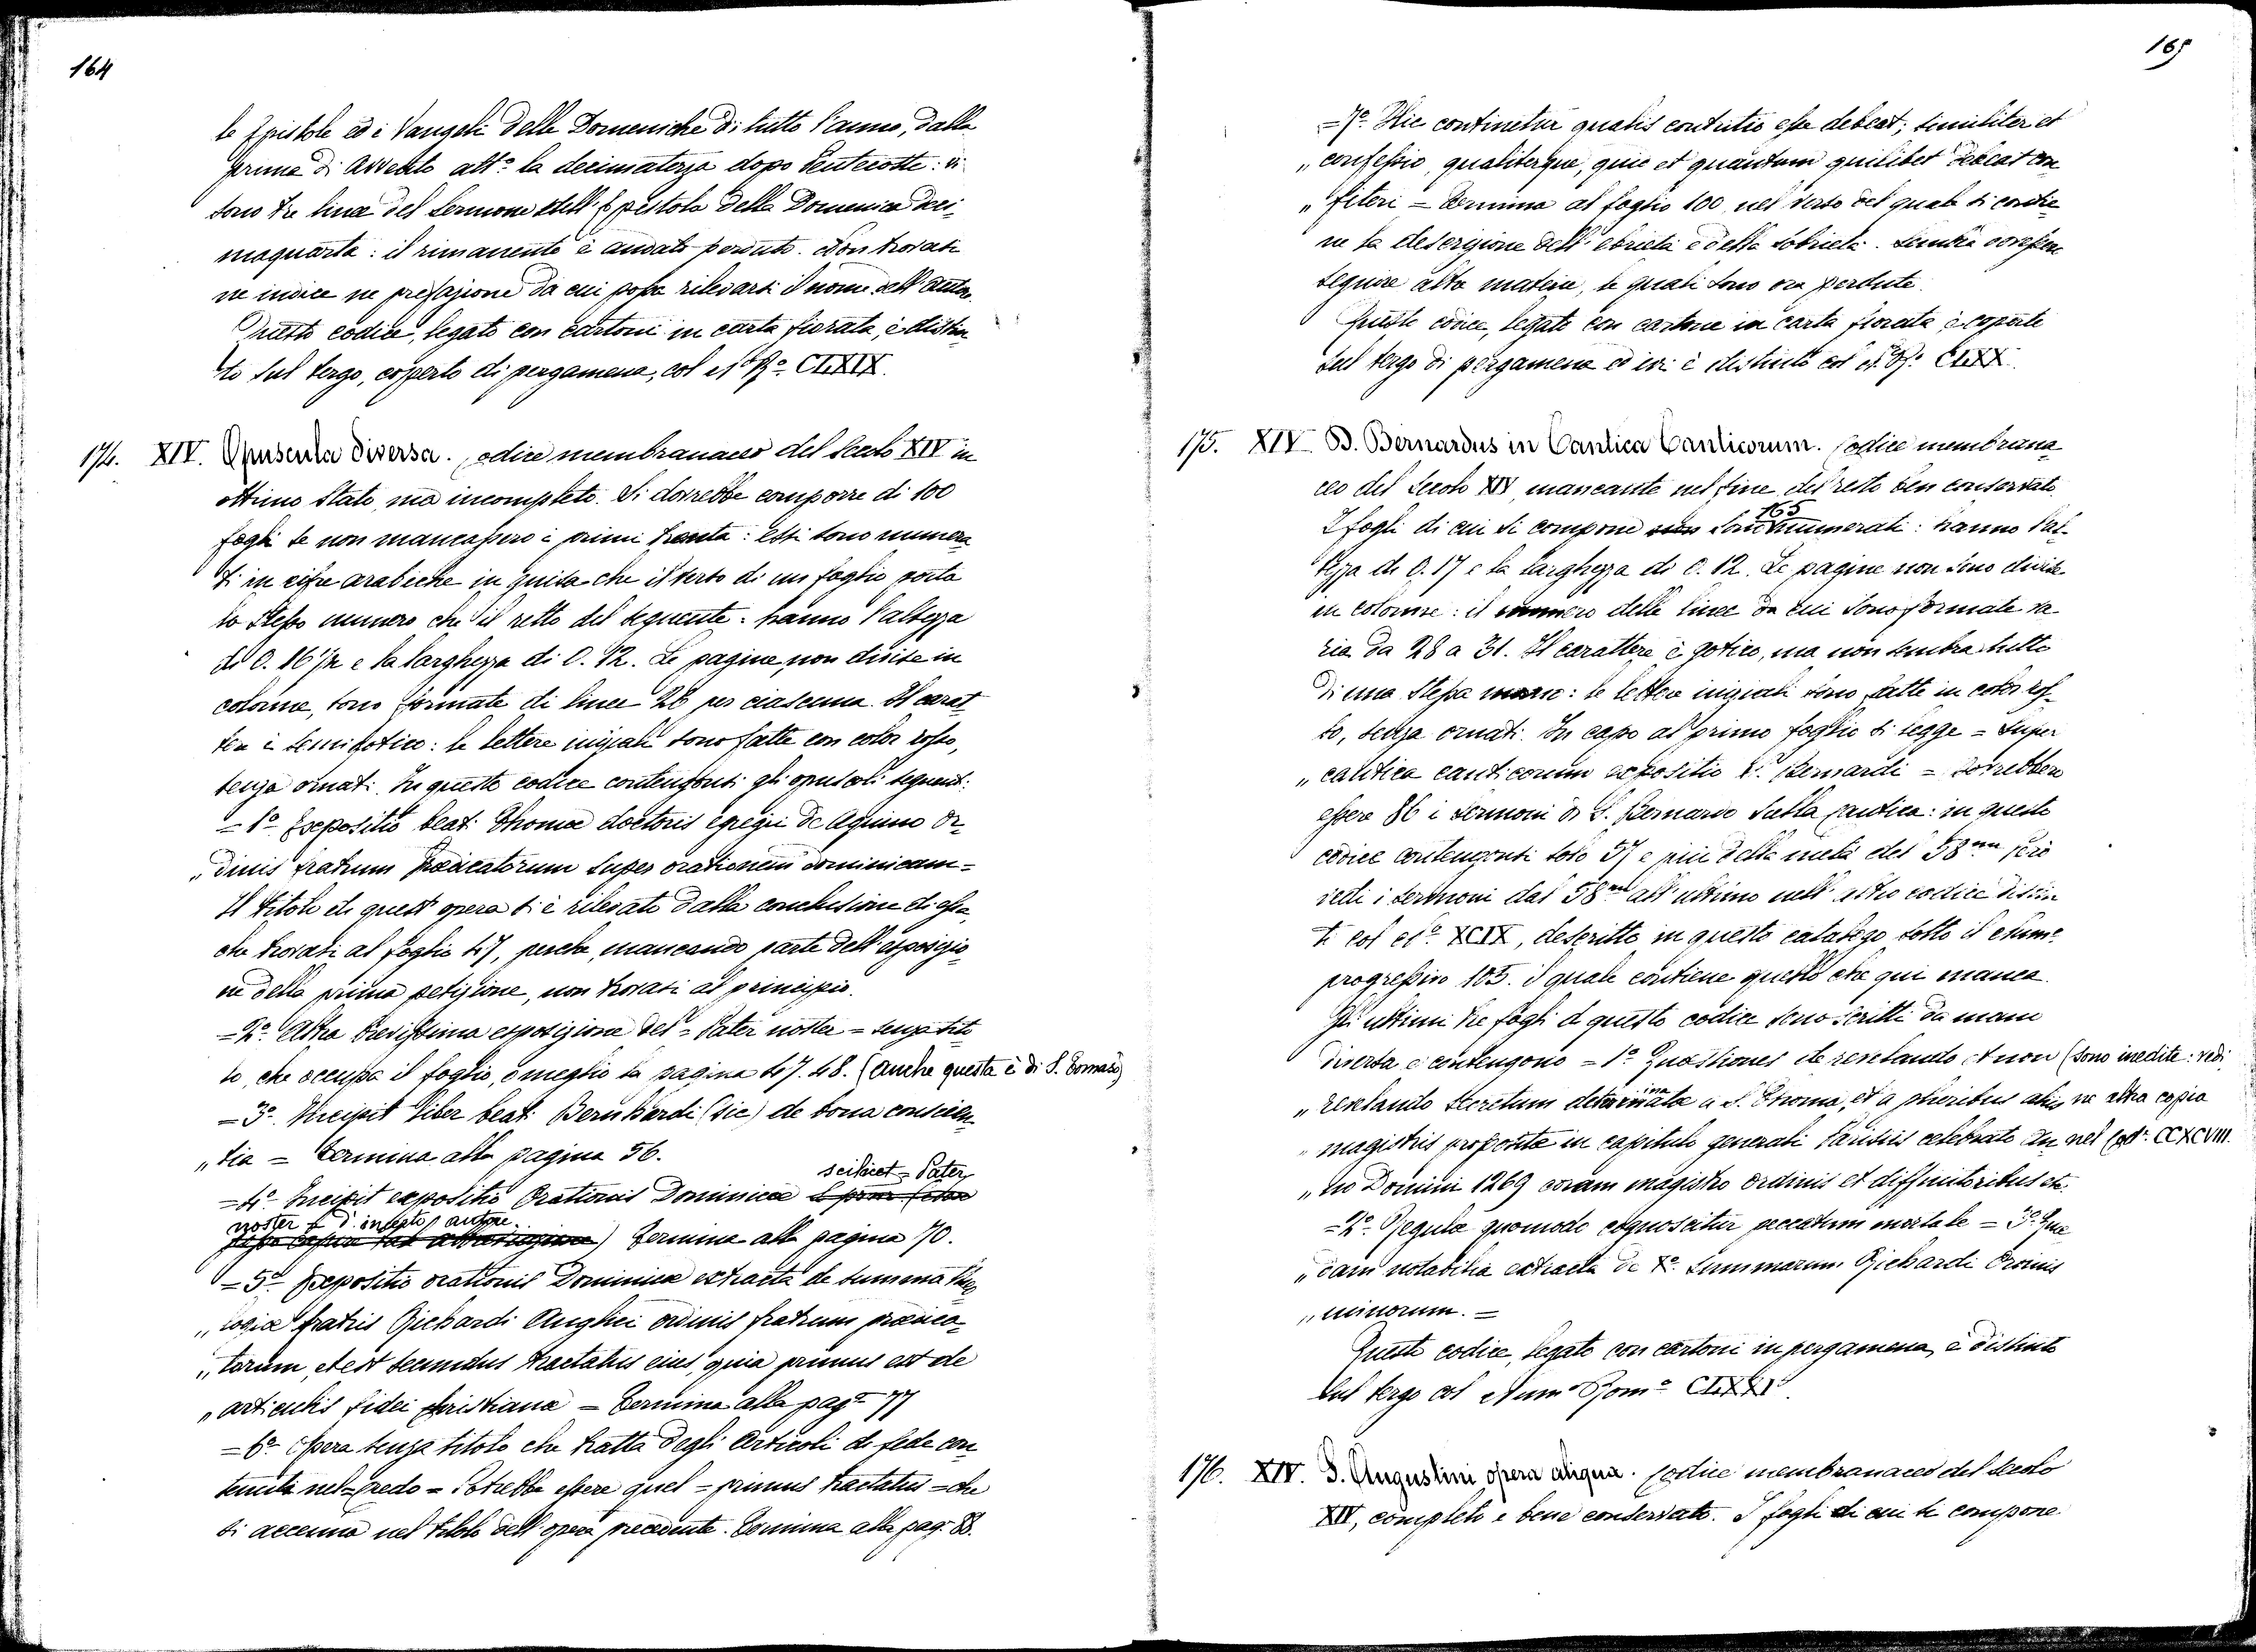 164
le Epistole ed i Vangeli delle Domeniche di tutto l'anno, dalla
prima di Avvento alla la decimaterza dopo Pentecoste: vi
sono tre linee del Sermone dell'Epistola della Domenica deci
maquarta: il rimanente è andato perduto. Non trovasi
ne indice ne prefazione da cui possa rilevarsi il nome dell'autore.
Questo codice, legato con cartoni in carta fiorata, è distin
to sul tergo, coperto di pergamena, col N° R° CLXIX.
174. XIV. Opuscula diversa. Codice membranaceo del Secolo XIV in
ottimo stato, ma incompleto. Si dovrebbe comporre di 100
fogli se non mancassero i primi trenta: essi sono numera
ti in cifre arabiche in guisa che il verso di un foglio porta
lo stesso numero che il retto del seguente: hanno l'altezza
di 0. 16 1/2 e la larghezza di 0. 12. Le pagine, non divise in
colonne, sono formate di linee 28 per ciascuna. Il carat
tere è semigotico: le lettere iniziali sono fatte con color rosso,
senza ornati. In questo codice contengonsi gli opuscoli seguenti:
= 1° Expositio beati Thomae doctoris egregii de Aquino Or
„ dinis fratrum praedicatorum super orationem dominicam =
Il titolo di quest'opera si è rilevato dalla conclusione di essa,
che trovasi al foglio 47, perchè, mancando parte dell'esposizio
ne della prima petizione, non trovasi al principio.
= 2° Altra brevissima esposizione del = Pater noster = senza tito
lo, che occupa il foglio, o meglio la pagina 47. 48. (Anche questa è di S. Tomaso)
= 3° Incipit liber beati Bernhardi (sic) de bona conscien
„ tia = Termina alla pagina 56.
= 4° Incipit expositio Orationis Dominicae scilicet = Pater
noster = d'incerto autore. Termina alla pagina 70.
= 5° Expositio orationis Dominicae extracta de summa theo
„ logiae fratris Richardi Anglici ordinis fratrum praedica
„ torum, et est secundus tractatus eius, quia primus est de
„ articulis fidei christianae = Termina alla pag° 77
= 6° Opera senza titolo che tratta degli Articoli di fede con
tenuti nel = Credo = Potrebbe essere quel = primus tractatus = che
si accenna nel titolo dell'opera precedente. Termina alla pag. 88.
165
= 7° Hic continetur qualis contritio esse debeat; similiter et
„ confessio, qualiterque, quid et quantum quilibet debeat con
„ fiteri = Termina al foglio 100, nel verso del quale si contie
ne la descrizione dell'ebrietà e della sobrietà. Sembra dovessero
seguire altre materie, le quali sono ora perdute.
Questo codice, legato con cartone in carta fiorata è coperto
sul tergo di pergamena ed ivi è distinto col N° R° CLXX.
175. XIV. D. Bernardus in Cantica Canticorum. Codice membrana
ceo del Secolo XIV, mancante nel fine, del resto ben conservato
I fogli di cui si compone sono 165 numerati: hanno l'al
tezza di 0. 17 e la larghezza di 0. 12. Le pagine non sono divise
in colonne: il numero delle linee da cui sono formate va
ria da 28 a 31. Il carattere è gotico, ma non sembra tutto
di una stessa mano: le lettere iniziali sono fatte in color ros
so, senza ornati. In capo al primo foglio si legge = Super
„ cantica canticorum expositio S. Bernardi = Dovrebbero
essere 86 i sermoni di S. Bernardo sulla Cantica: in questo
codice contengonsi solo 57 e più della metà del 58mo però
vedi i sermoni dal 58mo all'ultimo nell'altro codice distin
to col N° XCIX, descritto in questo catalogo sotto il Num°
progressivo 103. il quale contiene quello che qui manca.
Gli ultimi tre fogli di questo codice sono scritti da mano
diversa, e contengono = 1° Quaestiones de revelando et non (sono inedite: vedi,
„ revelando secretum determinatae a S. Thoma, et a pluribus aliis ne altra copia
„ magistris proposite in capitulo generali Parisiis celebrato An nel Cod° CCXCVIII.
„ no Domini 1269 coram magistro Ordinis et diffinitoribus etc.
= 2° Regula quomodo cognoscitur peccatum mortale = 3° Quae
„ dam notabilia extracta de X° summarum Richardi Ordinis
„ minorum. =
Questo codice, legato con cartoni in pergamena, è distinto
sul tergo col Num° Rom° CLXXI.
176. XIV. S. Augustini opera aliqua. Codice membranaceo del Secolo
XIV, completo e bene conservato. I fogli di cui si compone